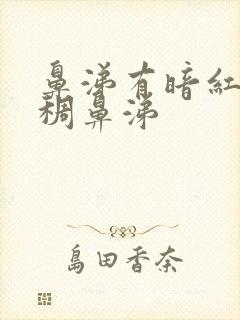 鼻涕有暗红
稠鼻涕
島田香奈